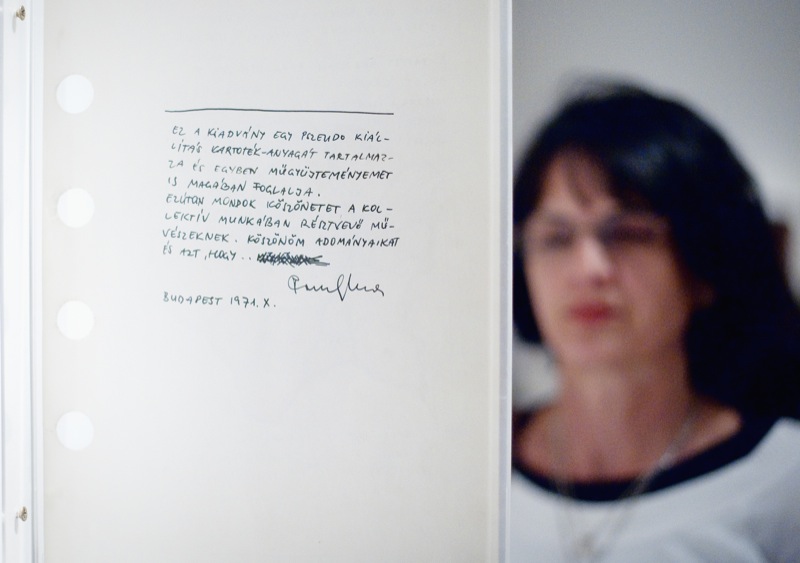 EZ A KIADVÁNY EGY PSZEUDO KIÁL-
LÍTÁS KARTOTÉK-ANYAGÁT TARTALMAZ-
ZA ÉS EGYBEN MŰGYŰJTEMÉNYEMET
IS MAGÁBAN FOGLALJA.
EZÚTON MONDOK KÖSZÖNETET A KOL-
LEKTÍV MUNKÁBAN RÉSZTVEVŐ MŰ-
VÉSZEKNEK. KÖSZÖNÖM ADOMÁNYAIKAT
ÉS AZT, HOGY..
BUDAPEST 1971. X.